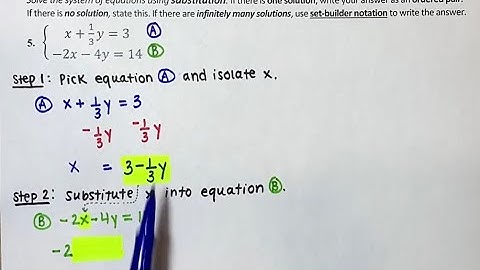 Solve the system of equations using substitution. If there is one solution, write your answer as an ordered pair.
If there is no solution, state this. If there are infinitely many solutions, use set-builder notation to write the answer.
5. { x + 1/3 y = 3 Ⓐ
−2x − 4y = 14 Ⓑ
Step 1: Pick equation Ⓐ and isolate x.
Ⓐ x + 1/3 y = 3
− 1/3 y − 1/3 y
x = 3 − 1/3 y
Step 2: Substitute x into equation Ⓑ.
Ⓑ −2x − 4y = 1
−2